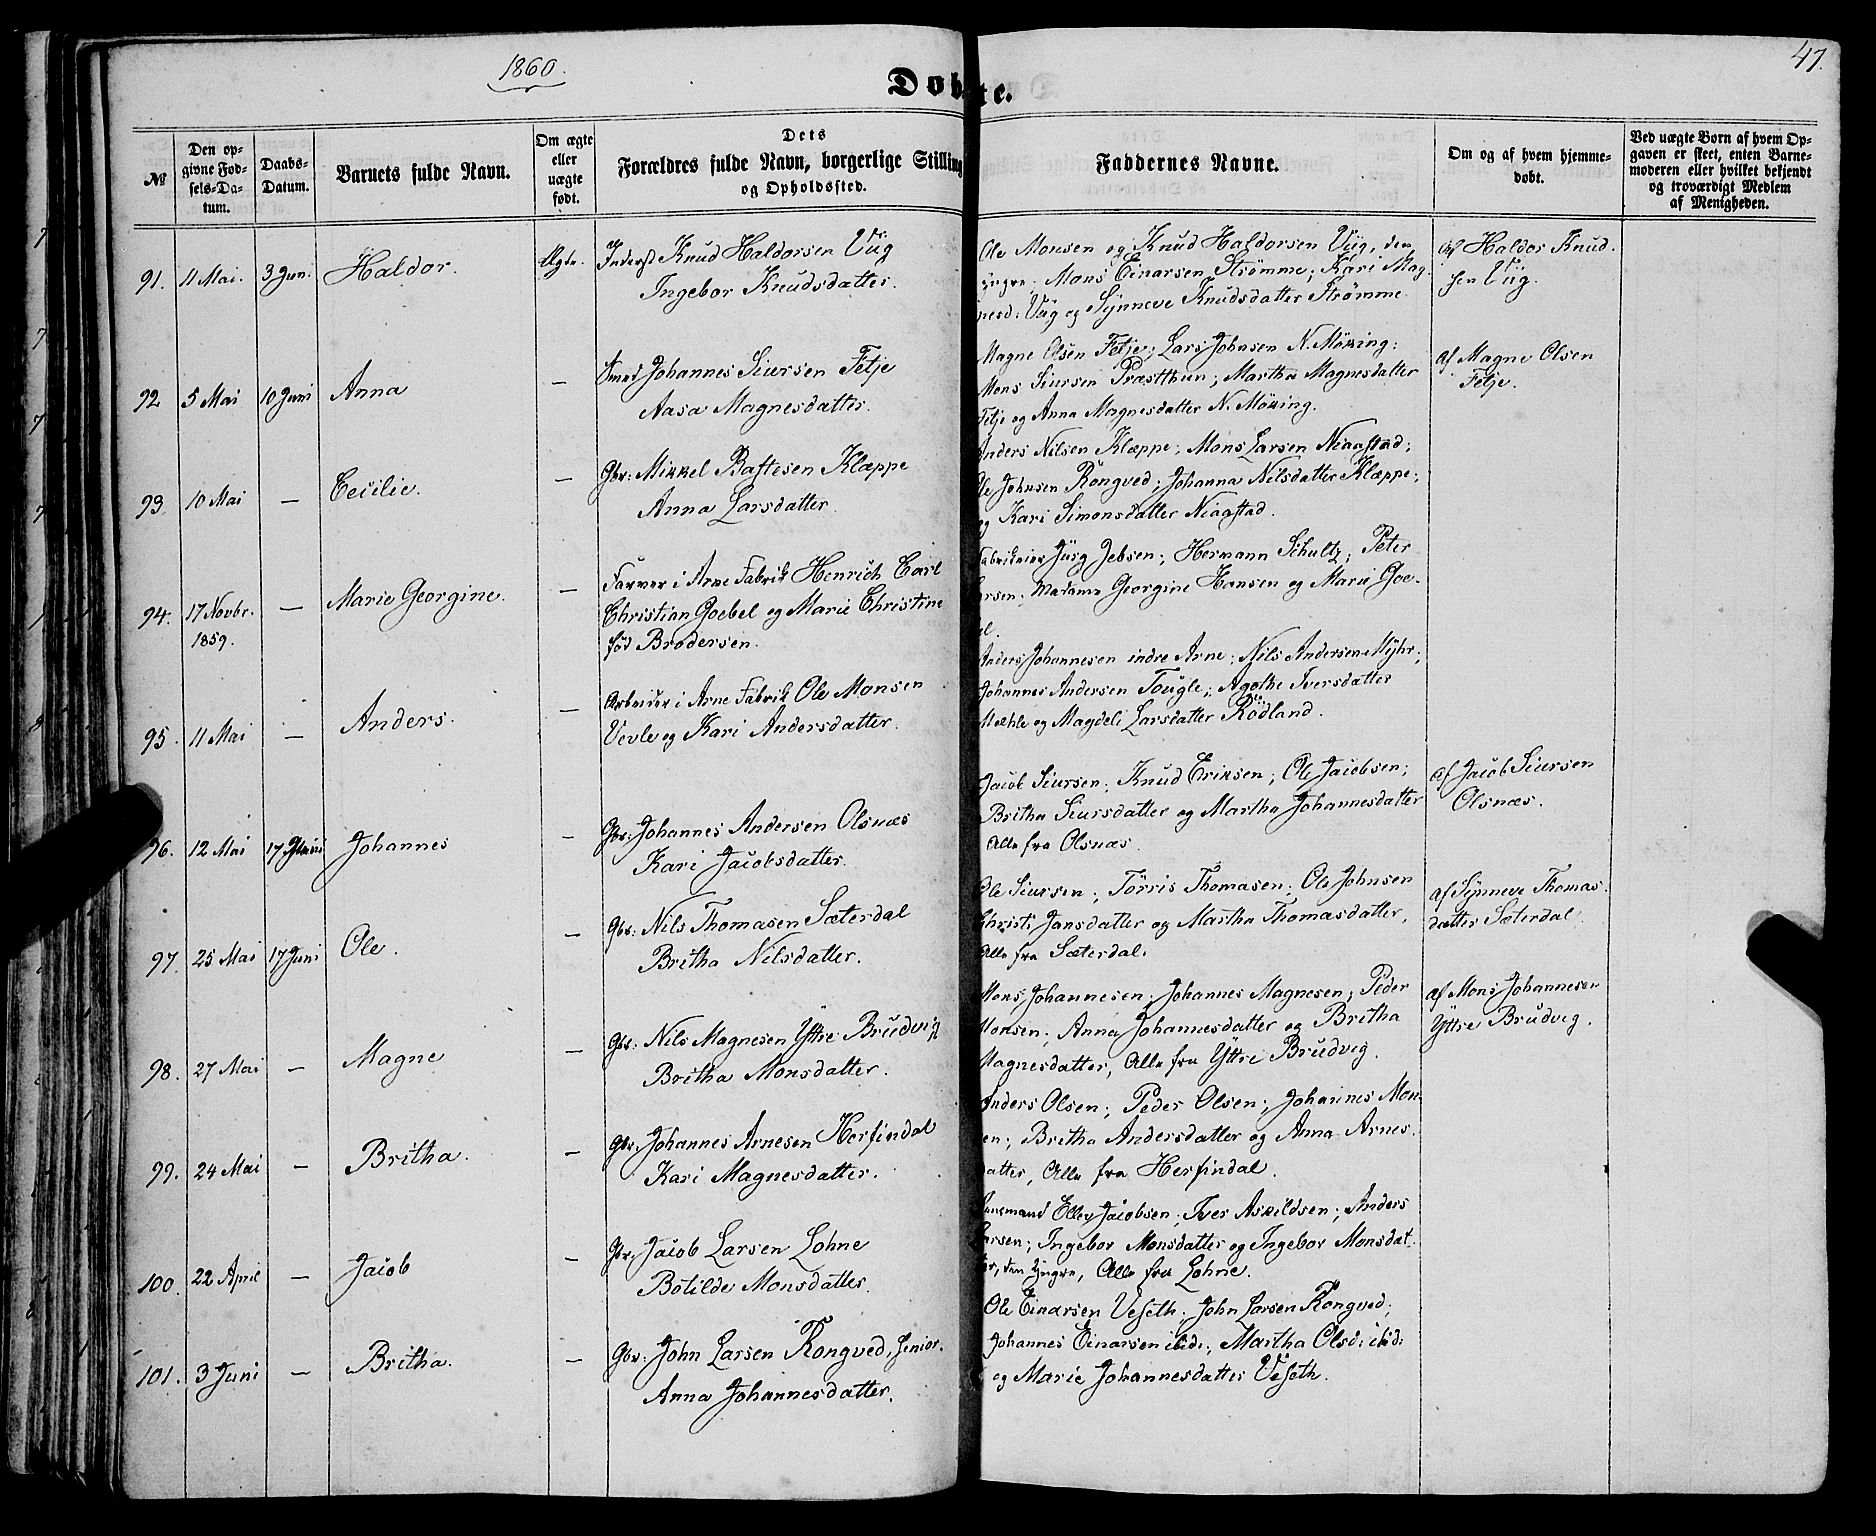 1860.
47.
Døbte.
№
Den opgivne Fødsels-Datum.
Daabs-Datum.
Barnets fulde Navn.
Om ægte eller uægte født.
Dets Forældres fulde Navn, borgerlige Stilling og Opholdssted.
Faddernes Navne.
Om og af hvem hjemmedøbt.
Ved uægte Børn af hvem Opgaven er skeet, enten Barnemoderen eller hvilket bekjendt og troværdigt Medlem af Menigheden.
91. 11 Mai. 3 Juni Haldor. Ægte. Inderst Knud Haldorsen Viig
Ingebor Knudsdatter.
Ole Monsen og Knud Haldorsen Viig, den
yngre; Mons Einarsen Strømme; Kari Mag
nesd: Viig og Synneve Knudsdatter Strømme.
af Haldor Knud
sen Viig.
92 5 Mai 10 Juni Anna — Smed Johannes Siursen Fetje
Aasa Magnesdatter.
Magne Olsen Fetje; Lars Johnsen N. Möking;
Mons Siursen Præstthun; Martha Magnesdatter
Fetje og Anna Magnesdatter N. Möking.
af Magne Olsen
Fetje.
93 10 Mai — Cecilie. — Gbr: Mikkel Baftesen Klæppe
Anna Larsdatter.
Anders Nilsen Klæppe; Mons Larsen Niagstad;
Ole Johnsen Rongved; Johanna Nilsdatter Klæppe;
og Kari Simonsdatter Niagstad.
94. 17 Novbr. — Marie Georgine. — Farver i Arne Fabrik Henrich Carl
1859.
Christian Goebel og Marie Christine
fød Brodersen.
Fabrikeier Jürg Jebsen; Hermann Schultz; Peter
Larsen; Madame Georgine Hansen og Marie Goe-
bel.
95. 11 Mai — Anders. — Arbeider i Arne Fabrik Ole Monsen
Vevle og Kari Andersdatter.
Anders Johannesen indre Arne; Nils Andersen Myhr;
Johannes Andersen Tougle; Agothe Iversdatter
Mæhle og Magdeli Larsdatter Rödland.
96. 12 Mai 17 Juni Johannes — Gbr: Johannes Andersen Olsnæs
Kari Jacobsdatter.
Jacob Siursen; Knud Eriksen; Ole Jacobsen;
Britha Siursdatter og Martha Johannesdatter
Alle fra Olsnæs.
af Jacob Siursen
Olsnæs.
97. 25 Mai 17 Juni Ole. — Gbr: Nils Thomasen Sæterdal
Britha Nilsdatter.
Ole Siursen; Törris Thomasen; Ole Johnsen
Christi Jansdatter og Martha Thomasdatter,
Alle fra Sæterdal.
af Synneve Thomas
datter Sæterdal
98. 27 Mai — Magne — Gbr: Nils Magnesen Yttre Brudvig
Britha Monsdatter.
Mons Johannesen; Johannes Magnesen; Peder
Monsen; Anna Johannesdatter og Britha
Magnesdatter, Alle fra Yttre Brudvig.
af Mons Johannesen
Yttre Brudvig.
99. 24 Mai — Britha. — Gbr: Johannes Arnesen Herfindal
Kari Magnesdatter.
Anders Olsen; Peder Olsen; Johannes Mon
sen; Britha Andersdatter og Anna Arnes
datter, Alle fra Herfindal.
100. 22 April — Jacob — Gbr: Jacob Larsen Lohne
Botilde Monsdatter.
Lensmand Ellev Jacobsen; Iver Askildsen; Anders
Larsen; Ingebor Monsdatter og Ingebor Monsdat
ter, den Yngre, Alle fra Lohne.
101. 3 Juni — Britha. — Gbr: John Larsen Rongved, senior.
Anna Johannesdatter.
Ole Einarsen Veseth; John Larsen Rongved;
Johannes Einarsen ibid:; Martha Olsd: ibid:
og Marie Johannesdatter Veseth.